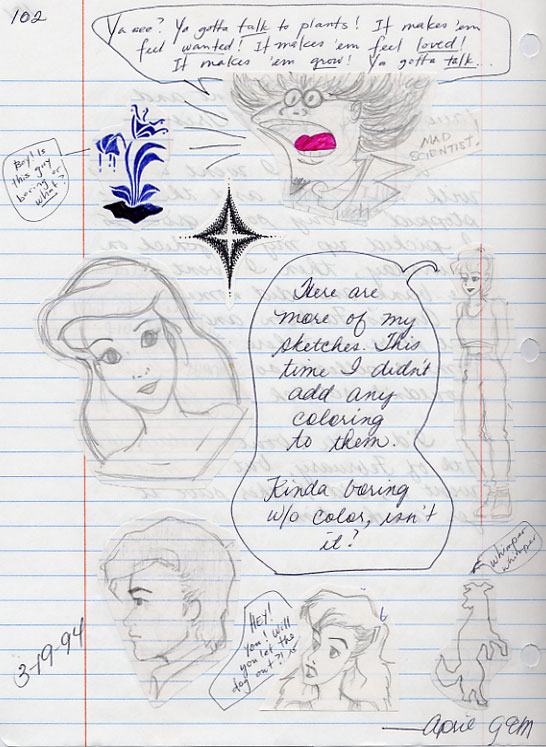 102
Ya see? Ya gotta talk to plants! It makes 'em
feel wanted! It makes 'em feel loved!
It makes 'em grow! Ya gotta talk...
Boy! Is
this guy
boring or
what?
MAD
SCIENTIST!
Here are
more of my
sketches. This
time I didn't
add any
coloring
to them.
Kinda boring
w/o color, isn't
it?
whimper
whimper
HEY!
You! Will
you let the
dog out?!
3-19-94
April GEM